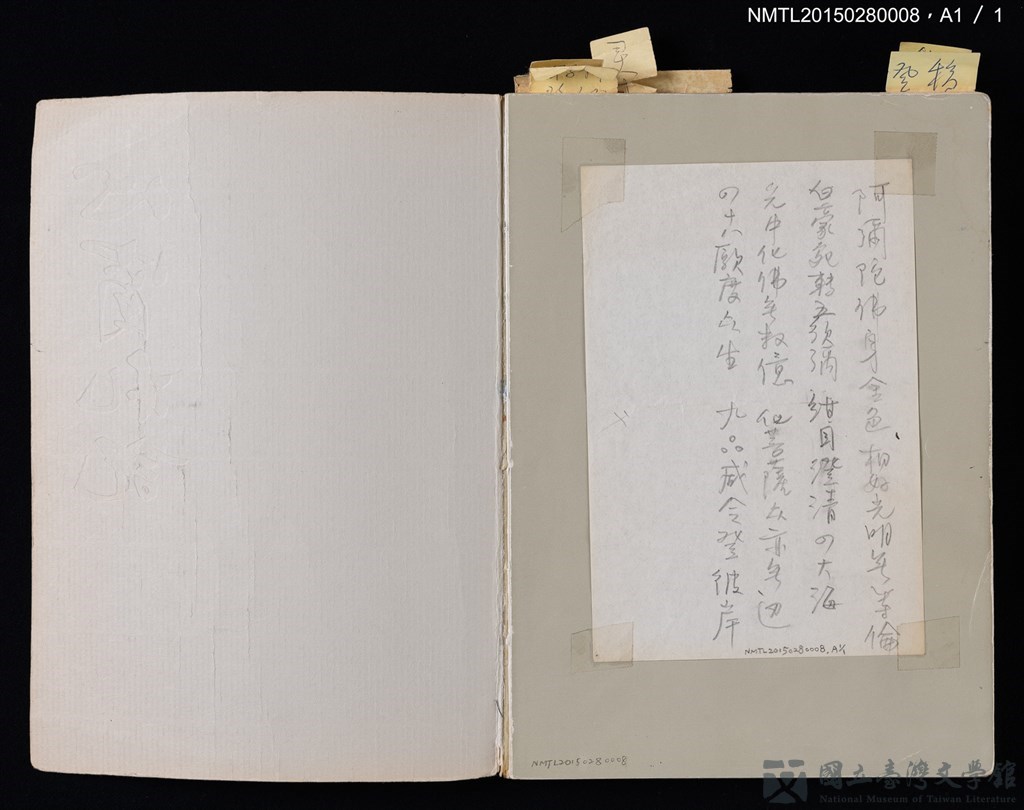 NMTL20150280008，A1 / 1
登稿
阿彌陀佛身金色 相好光明无等倫
白豪宛轉五須彌 紺目澄清の大海
光中化佛无数億 化菩薩众亦无边
の十八願度众生 九品咸令登彼岸
NMTL20150280008, A1/1
NMTL20150280008
國立臺灣文學館
National Museum of Taiwan Literature